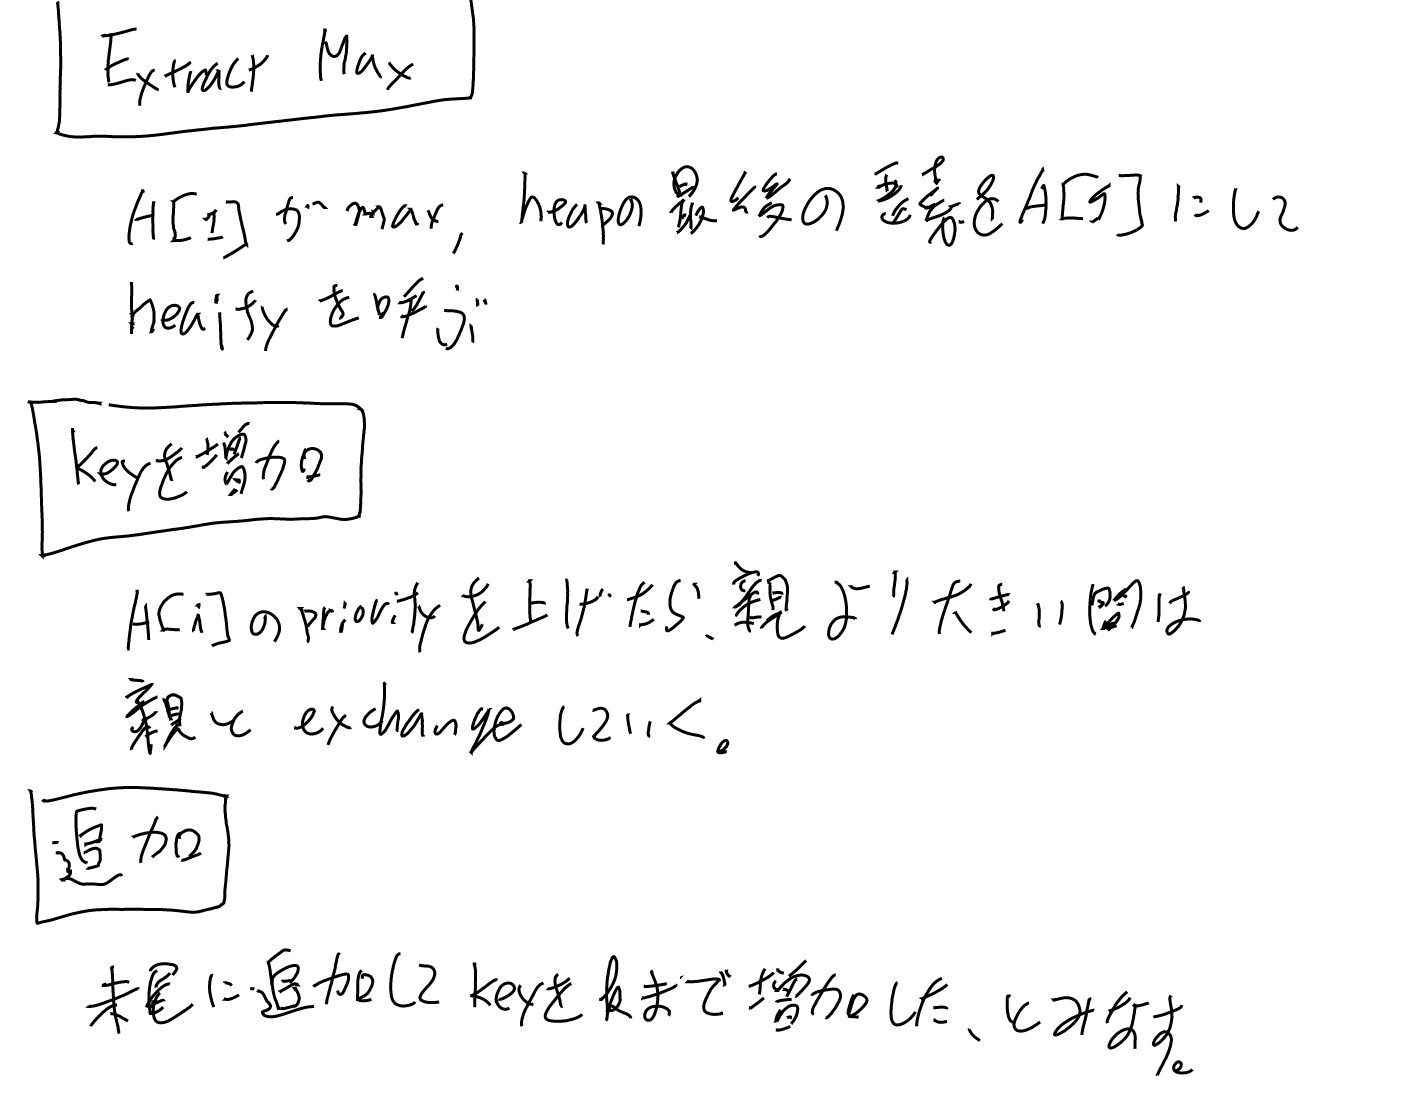 Extract Max
A[1]がmax, heapの最後の要素をA[1]にして
heaifyを呼ぶ
keyを増加
A[i]のpriorityを上げたら、親より大きい間は
親と exchange していく。
追加
末尾に追加して keyをkまで増加した、とみなす。